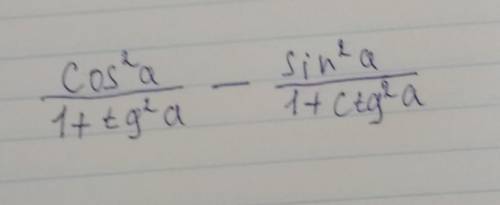 cos²a / 1+tg²a − sin²a / 1+ctg²a